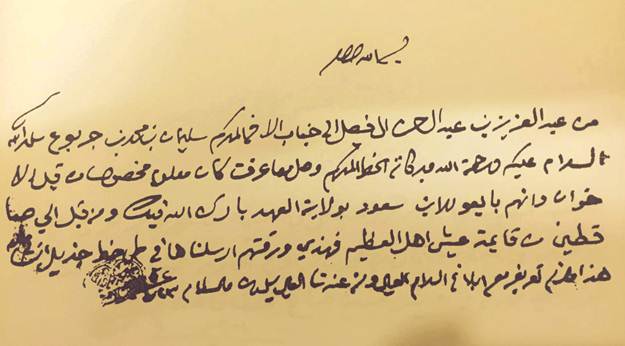 بسم الله
من عبد العزيز بن عبد الرحمن الفيصل الى جناب الاخ المكرم سليمان بن محمد بن جربوع سلمه الله
السلام عليكم ورحمة الله وبركاته الخط المكرم وصل وما عرفت كان معلوم مخصوصا من قبل الا
خوان وانهم بايعو للابن سعود بولاية العهد بارك الله فيك ومن قبل الي
قايمة عيش اهل العظيم فهذي ورقتهم ارسلناها في طي خط
هذا مالزم تعريفه مع ابلاغ السلام العيال ومن عندنا العيال يسلمون والسلام